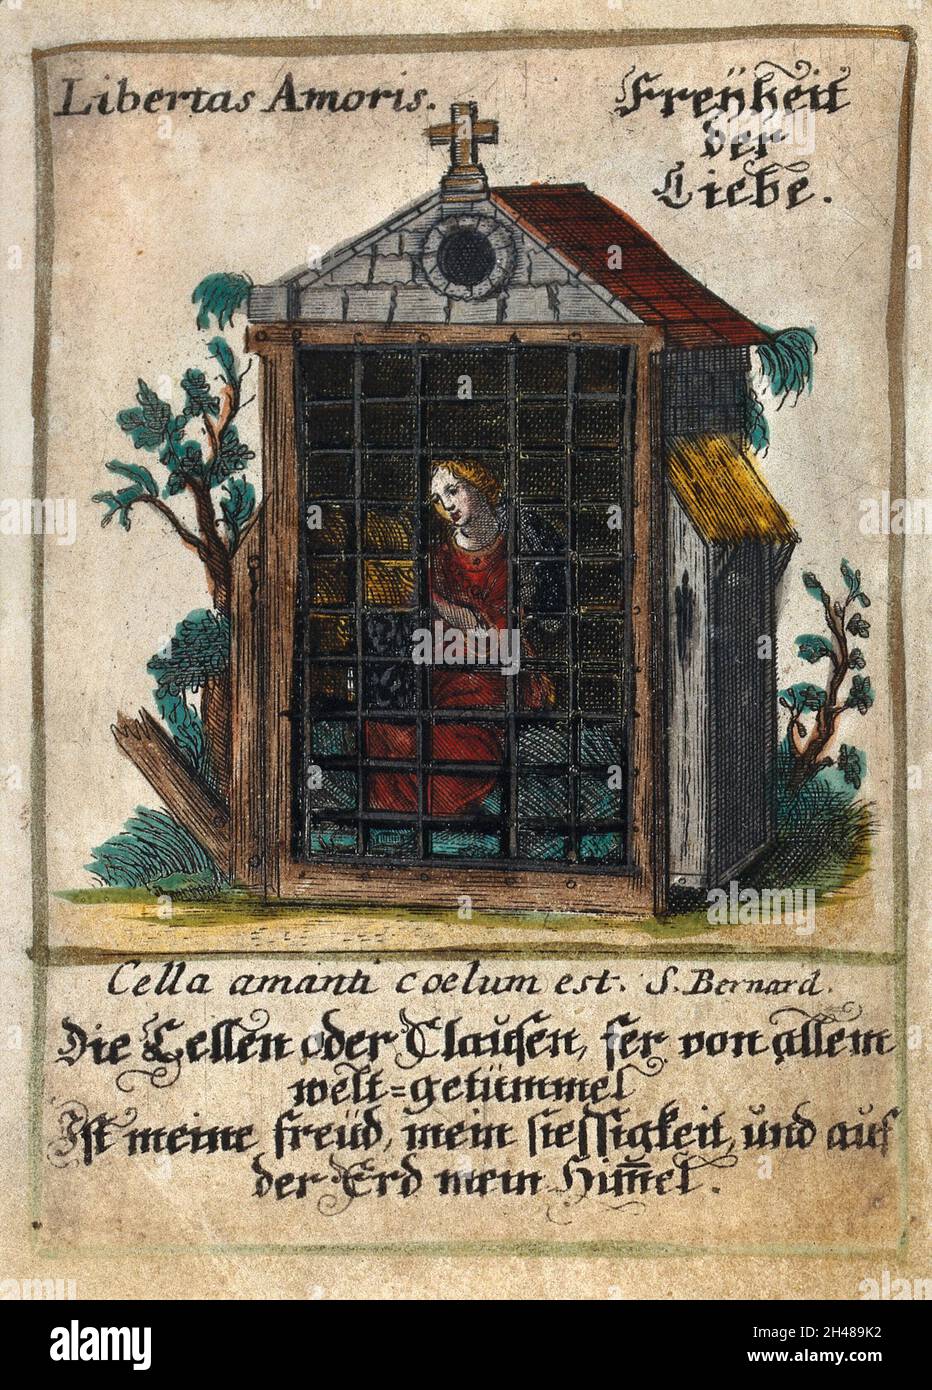 Libertas Amoris.
Freÿheit
der
Liebe.
Cella amanti coelum est. S. Bernard.
Die Cellen oder Clausen, fer von allem
welt=getümmel
Ist meine freüd, mein siessigkeit, und auf
der Erd mein Him̄el.
alamy
Image ID: 2H489K2
www.alamy.com